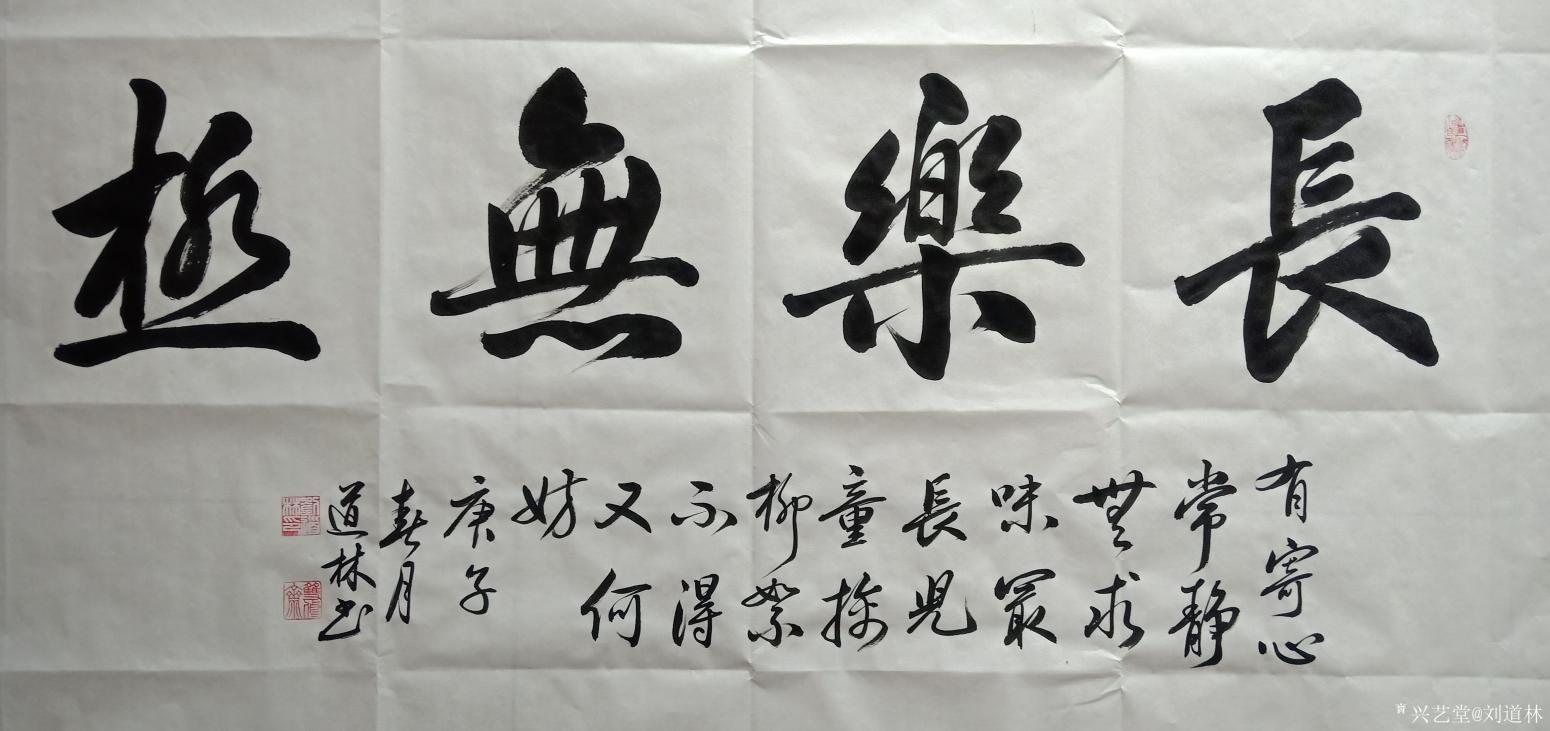 長樂無極
有寄心
常静
無求
味最
長兒
童擒
柳絮
不得
又何
妨
庚子
春月
道林书
兴艺堂@刘道林